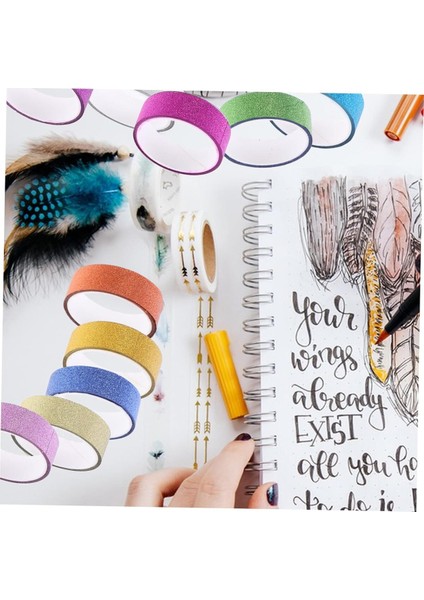 your
wings
already
EXIST
all you
to do is